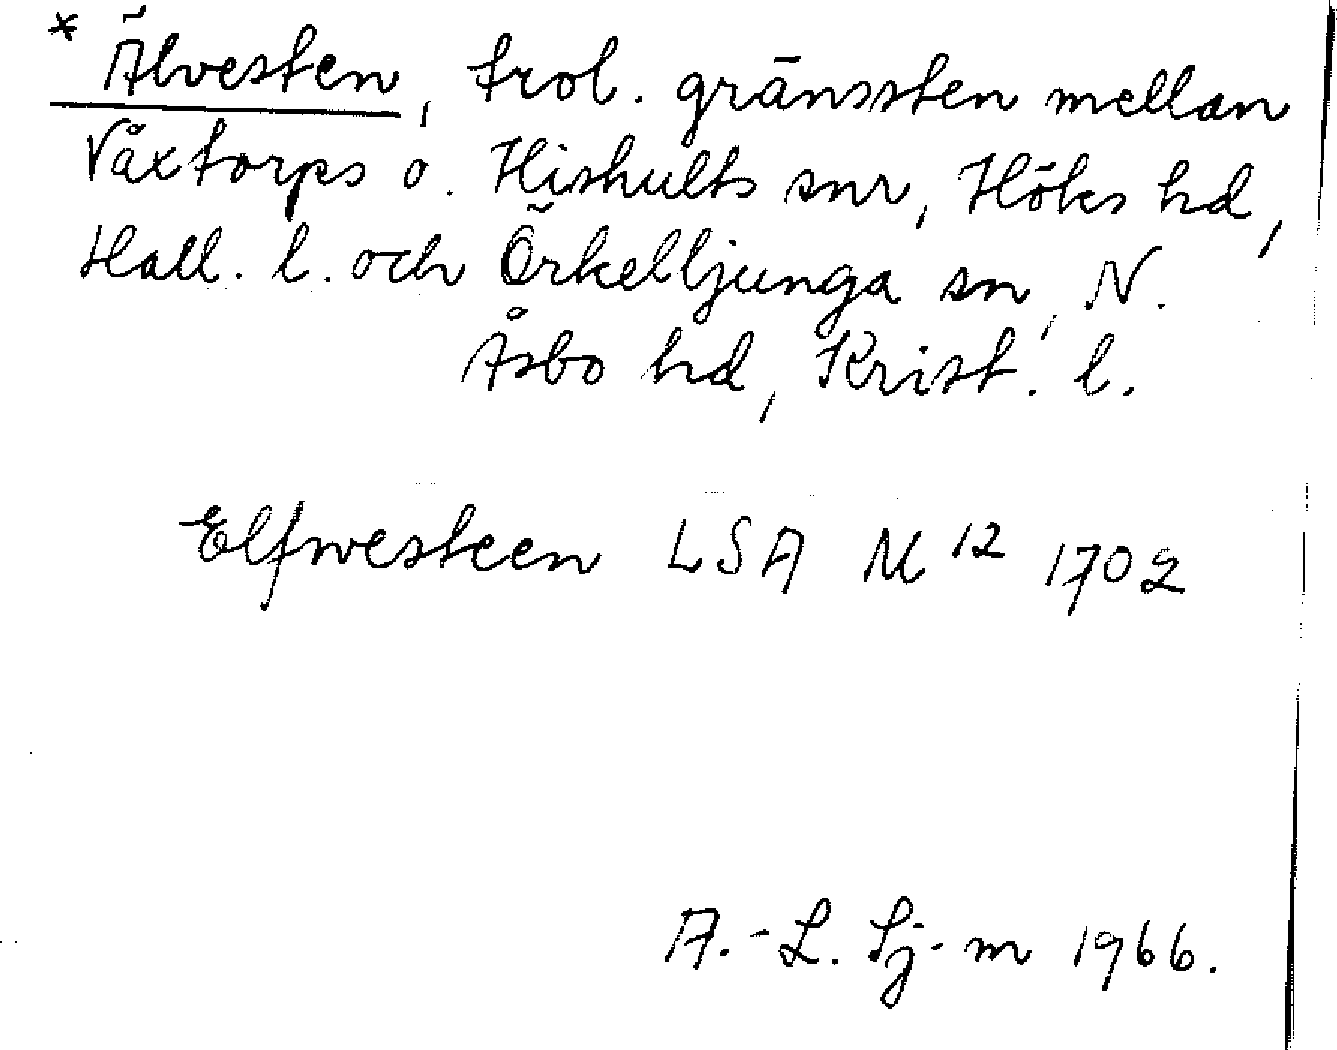 * Älvesten, trol. gränssten mellan
Våxtorps o. Hishults snr, Höks hd,
Hall. l. och Örkelljunga sn, N.
Åsbo hd, Krist. l.
Elfwesteen LSA M 12 1702
A.-L. Sj-m 1966.